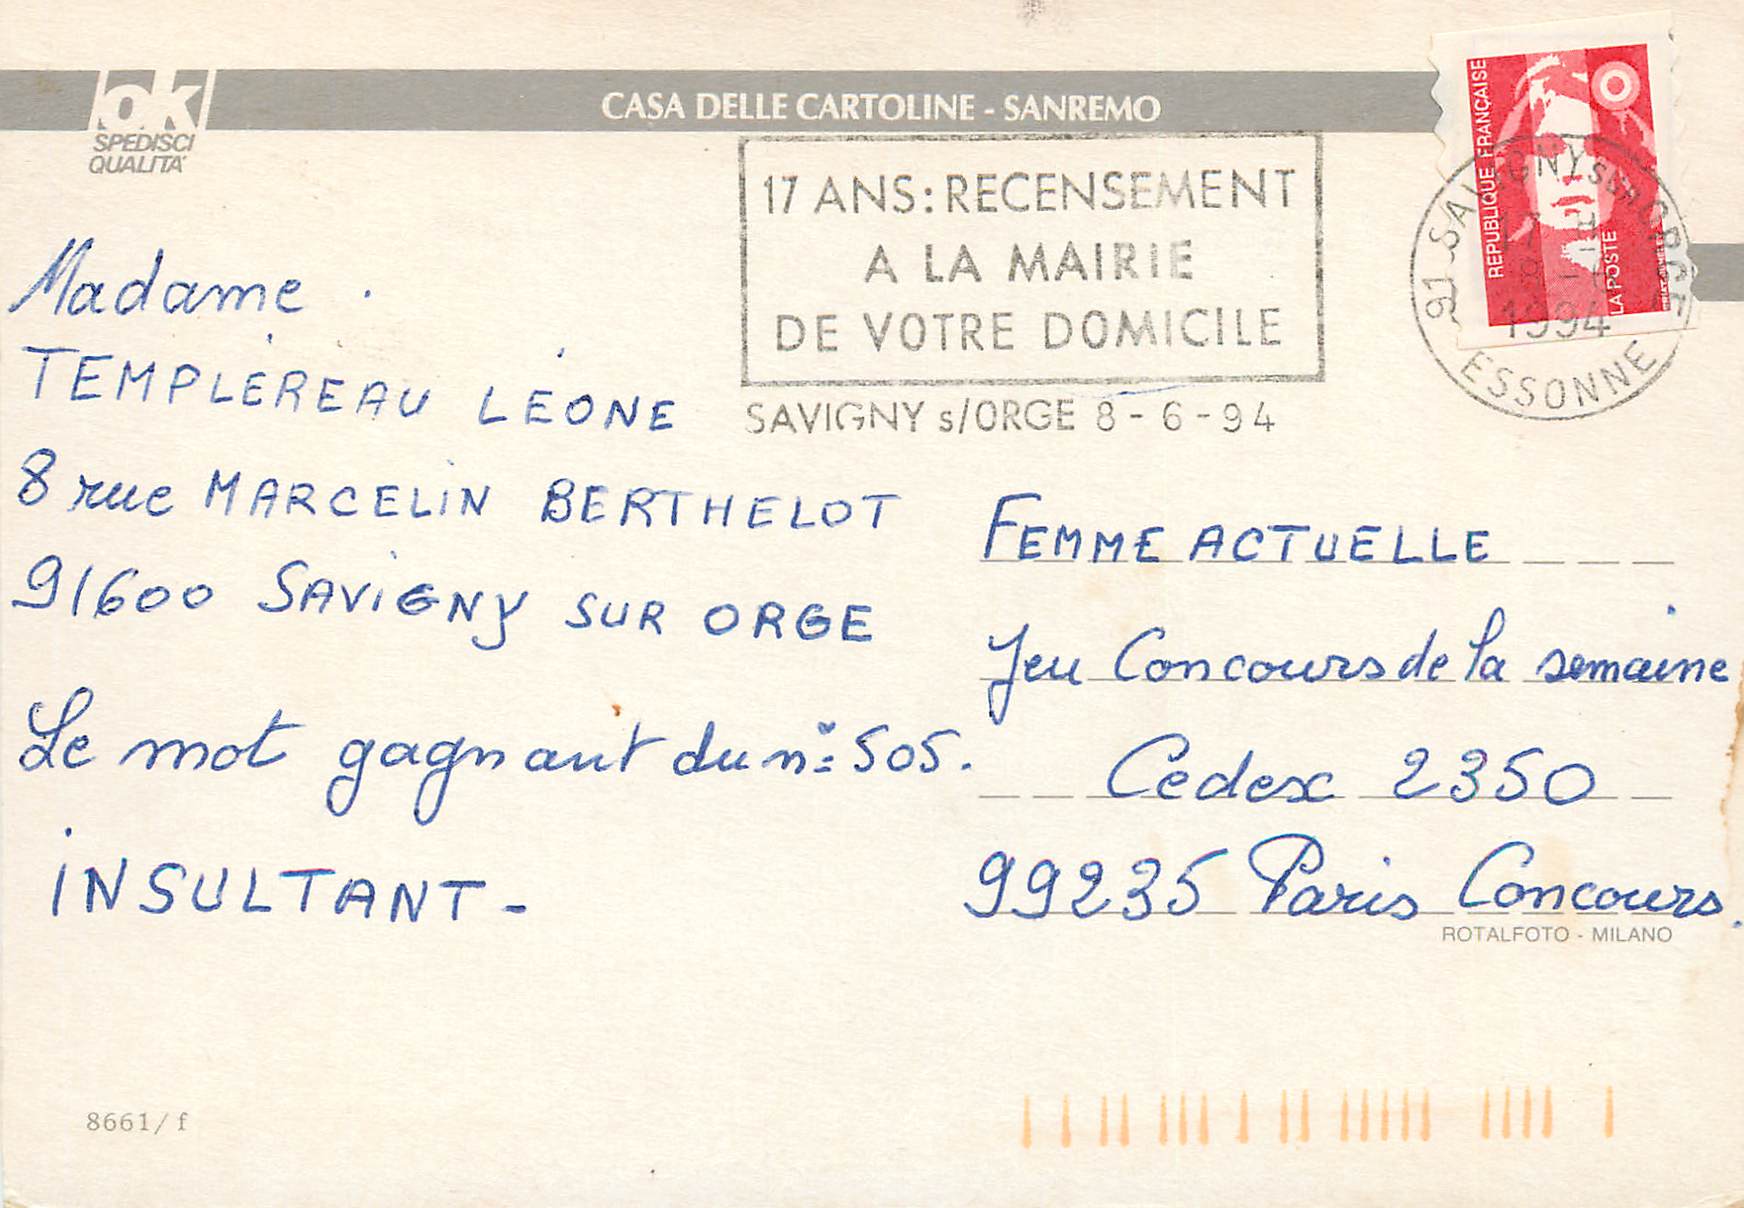 ok
SPEDISCI
QUALITA'
CASA DELLE CARTOLINE - SANREMO
REPUBLIQUE FRANÇAISE
LA POSTE
17 ANS: RECENSEMENT
A LA MAIRIE
DE VOTRE DOMICILE
SAVIGNY s/ORGE 8 - 6 - 94
91 SAVIGNY SUR ORGE
1994
ESSONNE
Madame
TEMPLÉREAU LÉONE
8 rue MARCELIN BERTHELOT
91600 SAVIGNY SUR ORGE
Le mot gagnant du n° 505.
INSULTANT -
FEMME ACTUELLE
Jeu Concours de la semaine
Cedex 2350
99235 Paris Concours.
ROTALFOTO - MILANO
8661/ f